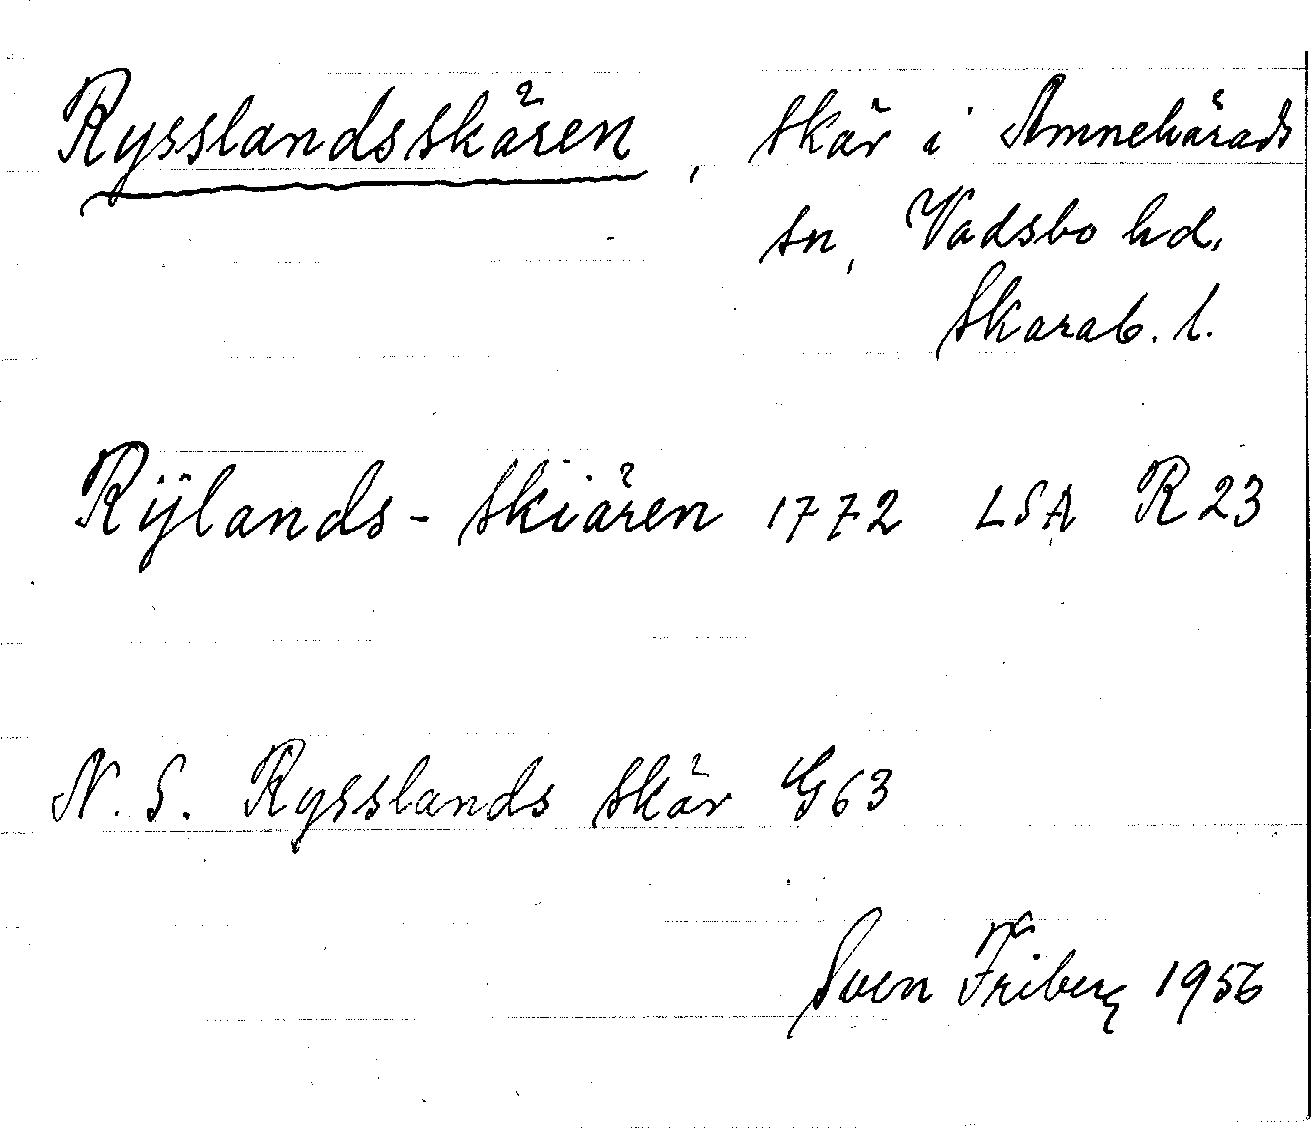 Rysslandsskären, skär i Amnehärads
sn, Vadsbo hd,
Skarab. l.
Rÿlands-skiären 1772 LSA R23
N. S. Rysslands skär G63
Sven Friberg 1956